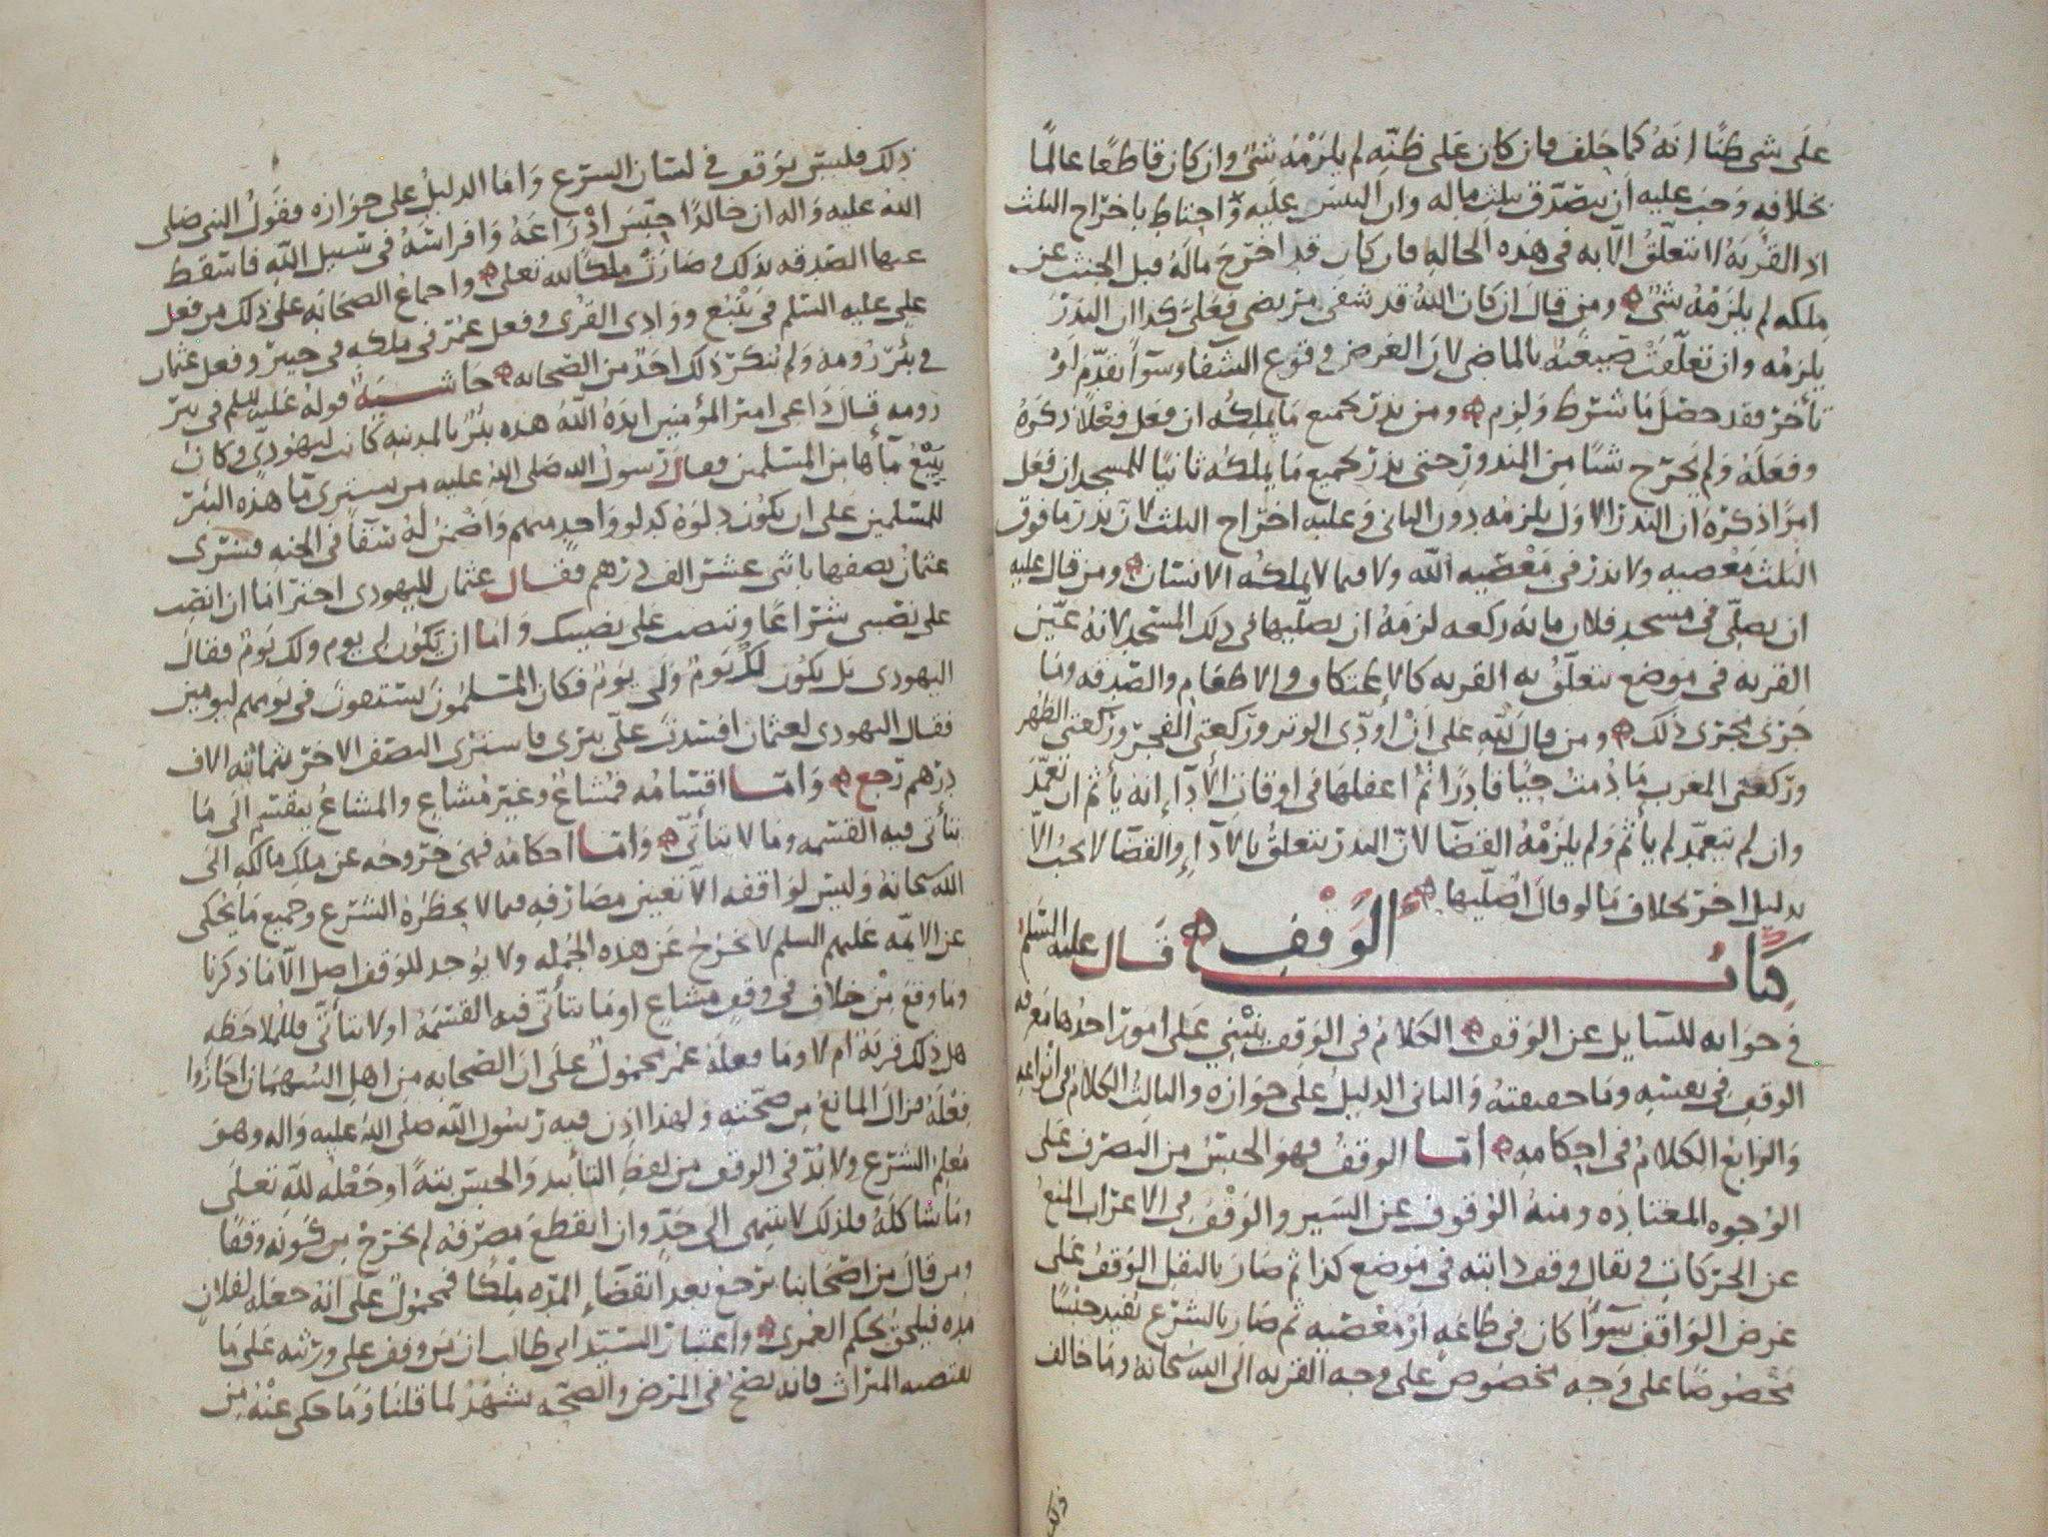 على شى ظنًا انه كما حلف فان كان على ظنه لم يلزمه شى وان كان قاطعًا عالمًا
بخلافه وجب عليه ان يتصدق بثلث ماله وان التبس عليه واحتاط باخراج الثلث
اذ القربه لا تتعلق الا به فى هذه الحاله فان كان قد اخرج ماله قبل الحنث عن
ملكه لم يلزمه شى ومن قال ان كان الله قد شفى مريضى فعلى كذا ان النذر
يلزمه وان تعلقت صيغته بالماضى لان الغرض وقوع الشفا وسوآ تقدم او
تأخر فقد حصل ما شرط ولزم ومن نذر بجميع ما يملكه ان فعل فعلا ذكره
وفعله ولم يخرج شيئا من المنذور حتى نذر بجميع ما يملكه ثانيًا للمسجد ان فعل
امرًا ذكره ان النذر الاول يلزمه دون الثانى وعليه اخراج الثلث لان نذر ما فوق
الثلث معصيه ولا نذر فى معصيه الله ولا فيما لا يملكه الانسان ومن قال عليه
ان يصلى فى مسجد فلان مائه ركعه لزمه ان يصليها فى ذلك المسجد لانه عين
القربه فى موضع تتعلق به القربه كالاعتكاف والاطعام والصدقه وما
جرى مجرى ذلك ومن قال لله على ان اودى الوتر وركعتى الفجر وركعتى الظهر
وركعتى المغرب ما دمت حيًا قادرًا ثم اغفلها فى اوقات الأدآء انه يأثم ان تعمد
وان لم يتعمد لم يأثم ولم يلزمه القضا لان النذر يتعلق بالادآء والقضا لا يجب الا
بدليل اخر بخلاف ما لو قال اصليها
كتاب الوقف قال عليه السلم
فى جوابه للسايل عن الوقف الكلام فى الوقف ينبنى على امور احدها معرفه
الوقف فى نفسه وما حقيقته والثانى الدليل على جوازه والثالث الكلام فى انواعه
والرابع الكلام فى احكامه اما الوقف فهو الحبس من التصرف على
الوجوه المعتاده ومنه الوقوف عن السير والوقف فى الاعراب المنع
عن الحركات ويقال وقف دابته فى موضع كذا ثم صار بالنقل الوقف على
غرض الواقف سوآ كان فى طاعه او معصيه ثم صار بالشرع يفيد حبسًا
مخصوصًا على وجه مخصوص على وجه القربه الى الله سبحانه وما خالف
ذلك
ذلك فليس بوقف فى لسان الشرع واما الدليل على جوازه فقول النبى صلى
الله عليه واله ان خالدًا حبس ادراعه وافراسه فى سبيل الله فاسقط
عنها الصدقه بذلك وصارت ملكًا لله تعلى واجماع الصحابه على ذلك من فعل
على عليه السلم فى ينبع ووادى القرى وفعل عمر فى ملكه فى خيبر وفعل عثمان
فى بئر رومه ولم ينكر ذلك احد من الصحابه حاشيه قوله عليه السلم فى بئر
رومه قال داعى امير المؤمنين ايده الله هذه بئر بالمدينه كانت ليهودى وكان
يبيع مآها من المسلمين فقال رسول الله صلى الله عليه من يشترى ما هذه البئر
للمسلمين على ان يكون دلوه كدلو واحد منهم واضمن له سقآ فى الجنه فشرى
عثمان نصفها باثنى عشر الف درهم فقال عثمان لليهودى اختر اما ان انصب
على نصيبى شراعًا وتنصب على نصيبك واما ان يكون لى يوم ولك يوم فقال
اليهودى بل يكون لك يوم ولى يوم فكان المسلمون يستقون فى يومهم ليومين
فقال اليهودى لعثمان افسدت على بئرى فاشترى النصف الاخر بثمانيه الاف
درهم رجع واما اقسامه فمشاع وغير مشاع والمشاع ينقسم الى ما
يتأتى فيه القسمه وما لا يتأتى واما احكامه فهى خروجه عن ملك مالكه الى
الله سبحانه وليس لواقفه الا تعيين مصارفه فيما لا يحظره الشرع وجميع ما يحكى
عن الايمه عليهم السلم لا يخرج عن هذه الجمله ولا يوجد للوقف اصل الا ما ذكرنا
وما وقع من خلاف فى وقف مشاع او ما يتأتى فيه القسمه او لا يتأتى فللملاحظه
هل ذلك قربه ام لا وما فعله عمر محمول على ان الصحابه من اهل السهمان اجازوا
فعله فزال المانع من صحته ولهذا اذن فيه رسول الله صلى الله عليه واله وهو
معلم الشرع ولا بد فى الوقف من لفظ التأبيد والحبس بتةً او جعله لله تعلى
وما شاكله فلذلك لا ينتهى الى حد وان انقطع مصرفه لم يخرج من كونه وقفًا
ومن قال من اصحابنا يرجع بعد انقضآء المده ملكًا فمحمول على انه جعله لفلان
مده فيلحق بحكم العمرى واعتبار السيد ابى طالب ان من وقف على ورثته على ما
يقتضيه الميراث فانه يصح فى المرض والصحه يشهد لما قلنا وما حكى عنه من